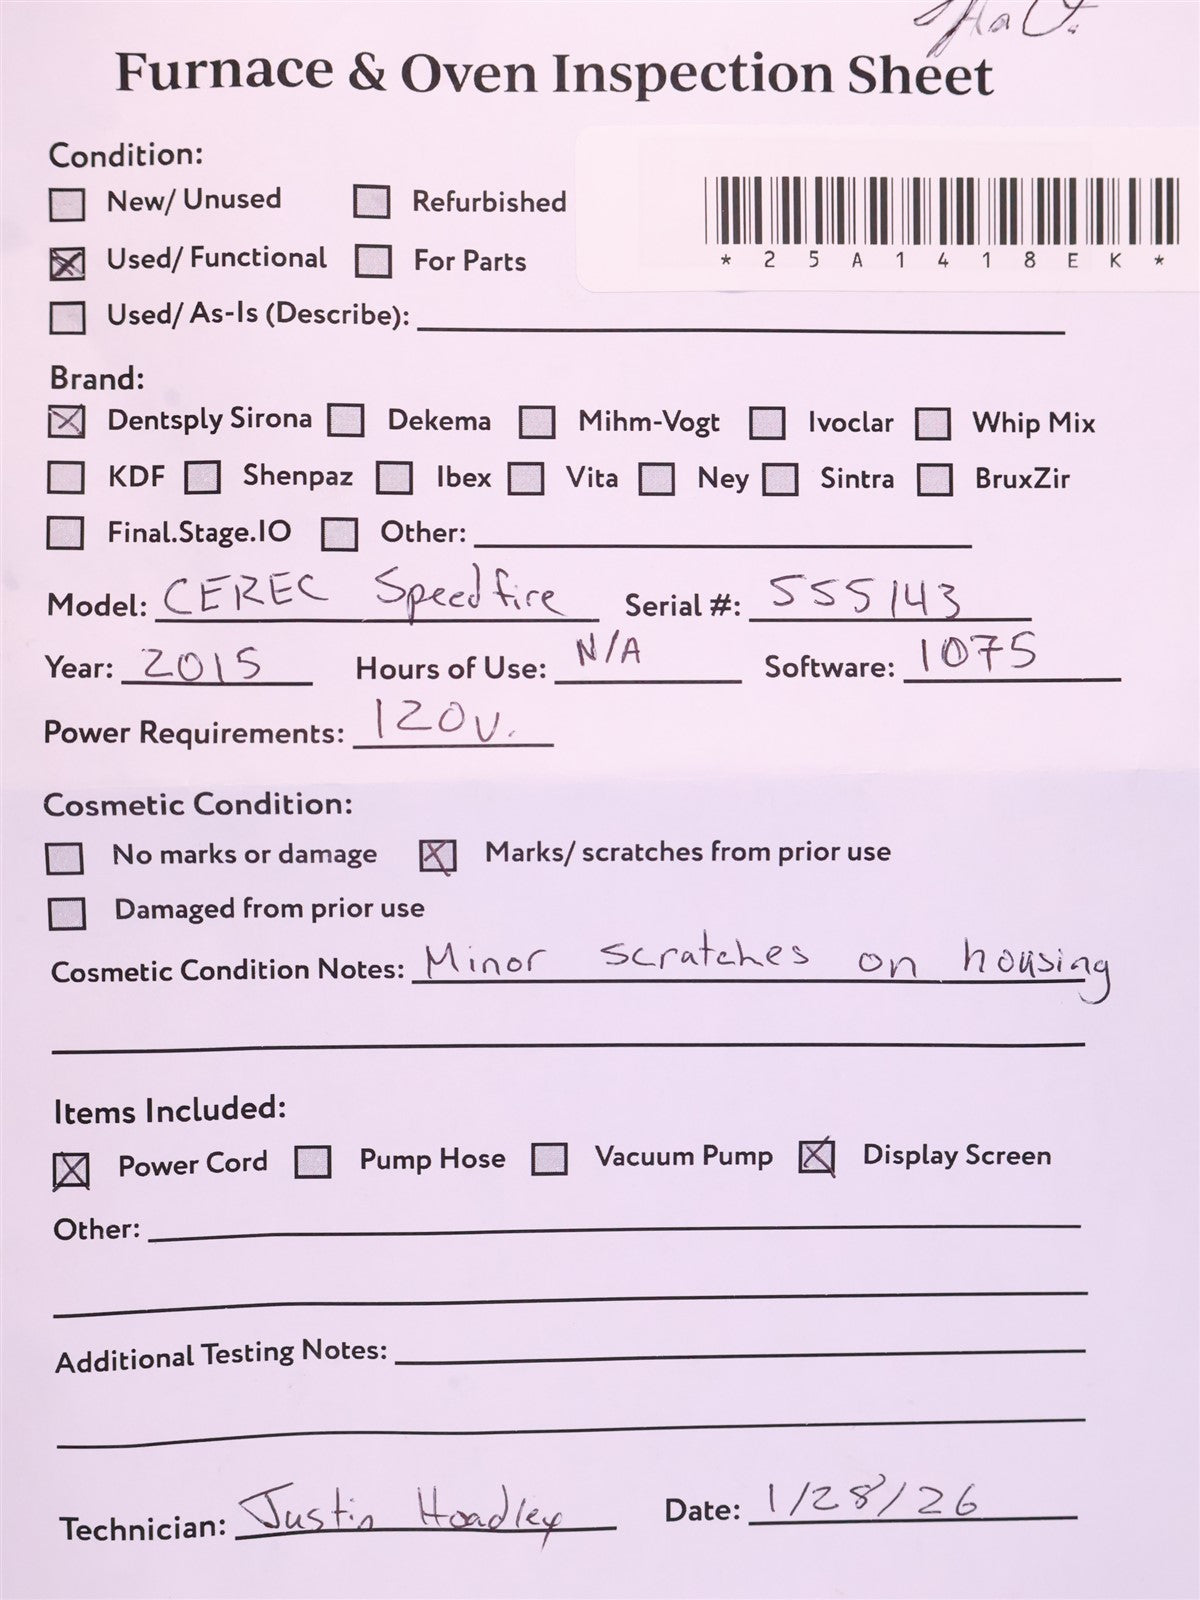 Furnace & Oven Inspection Sheet
Condition:
New/ Unused Refurbished
*25A1418EK*
Used/ Functional For Parts
Used/ As-Is (Describe):
Brand:
Dentsply Sirona Dekema Mihm-Vogt Ivoclar Whip Mix
KDF Shenpaz Ibex Vita Ney Sintra BruxZir
Final.Stage.IO Other:
Model: CEREC Speedfire Serial #: 555143
Year: 2015 Hours of Use: N/A Software: 1075
Power Requirements: 120v.
Cosmetic Condition:
No marks or damage Marks/ scratches from prior use
Damaged from prior use
Cosmetic Condition Notes: Minor scratches on housing
Items Included:
Power Cord Pump Hose Vacuum Pump Display Screen
Other:
Additional Testing Notes:
Technician: Justin Hoadley Date: 1/28/26